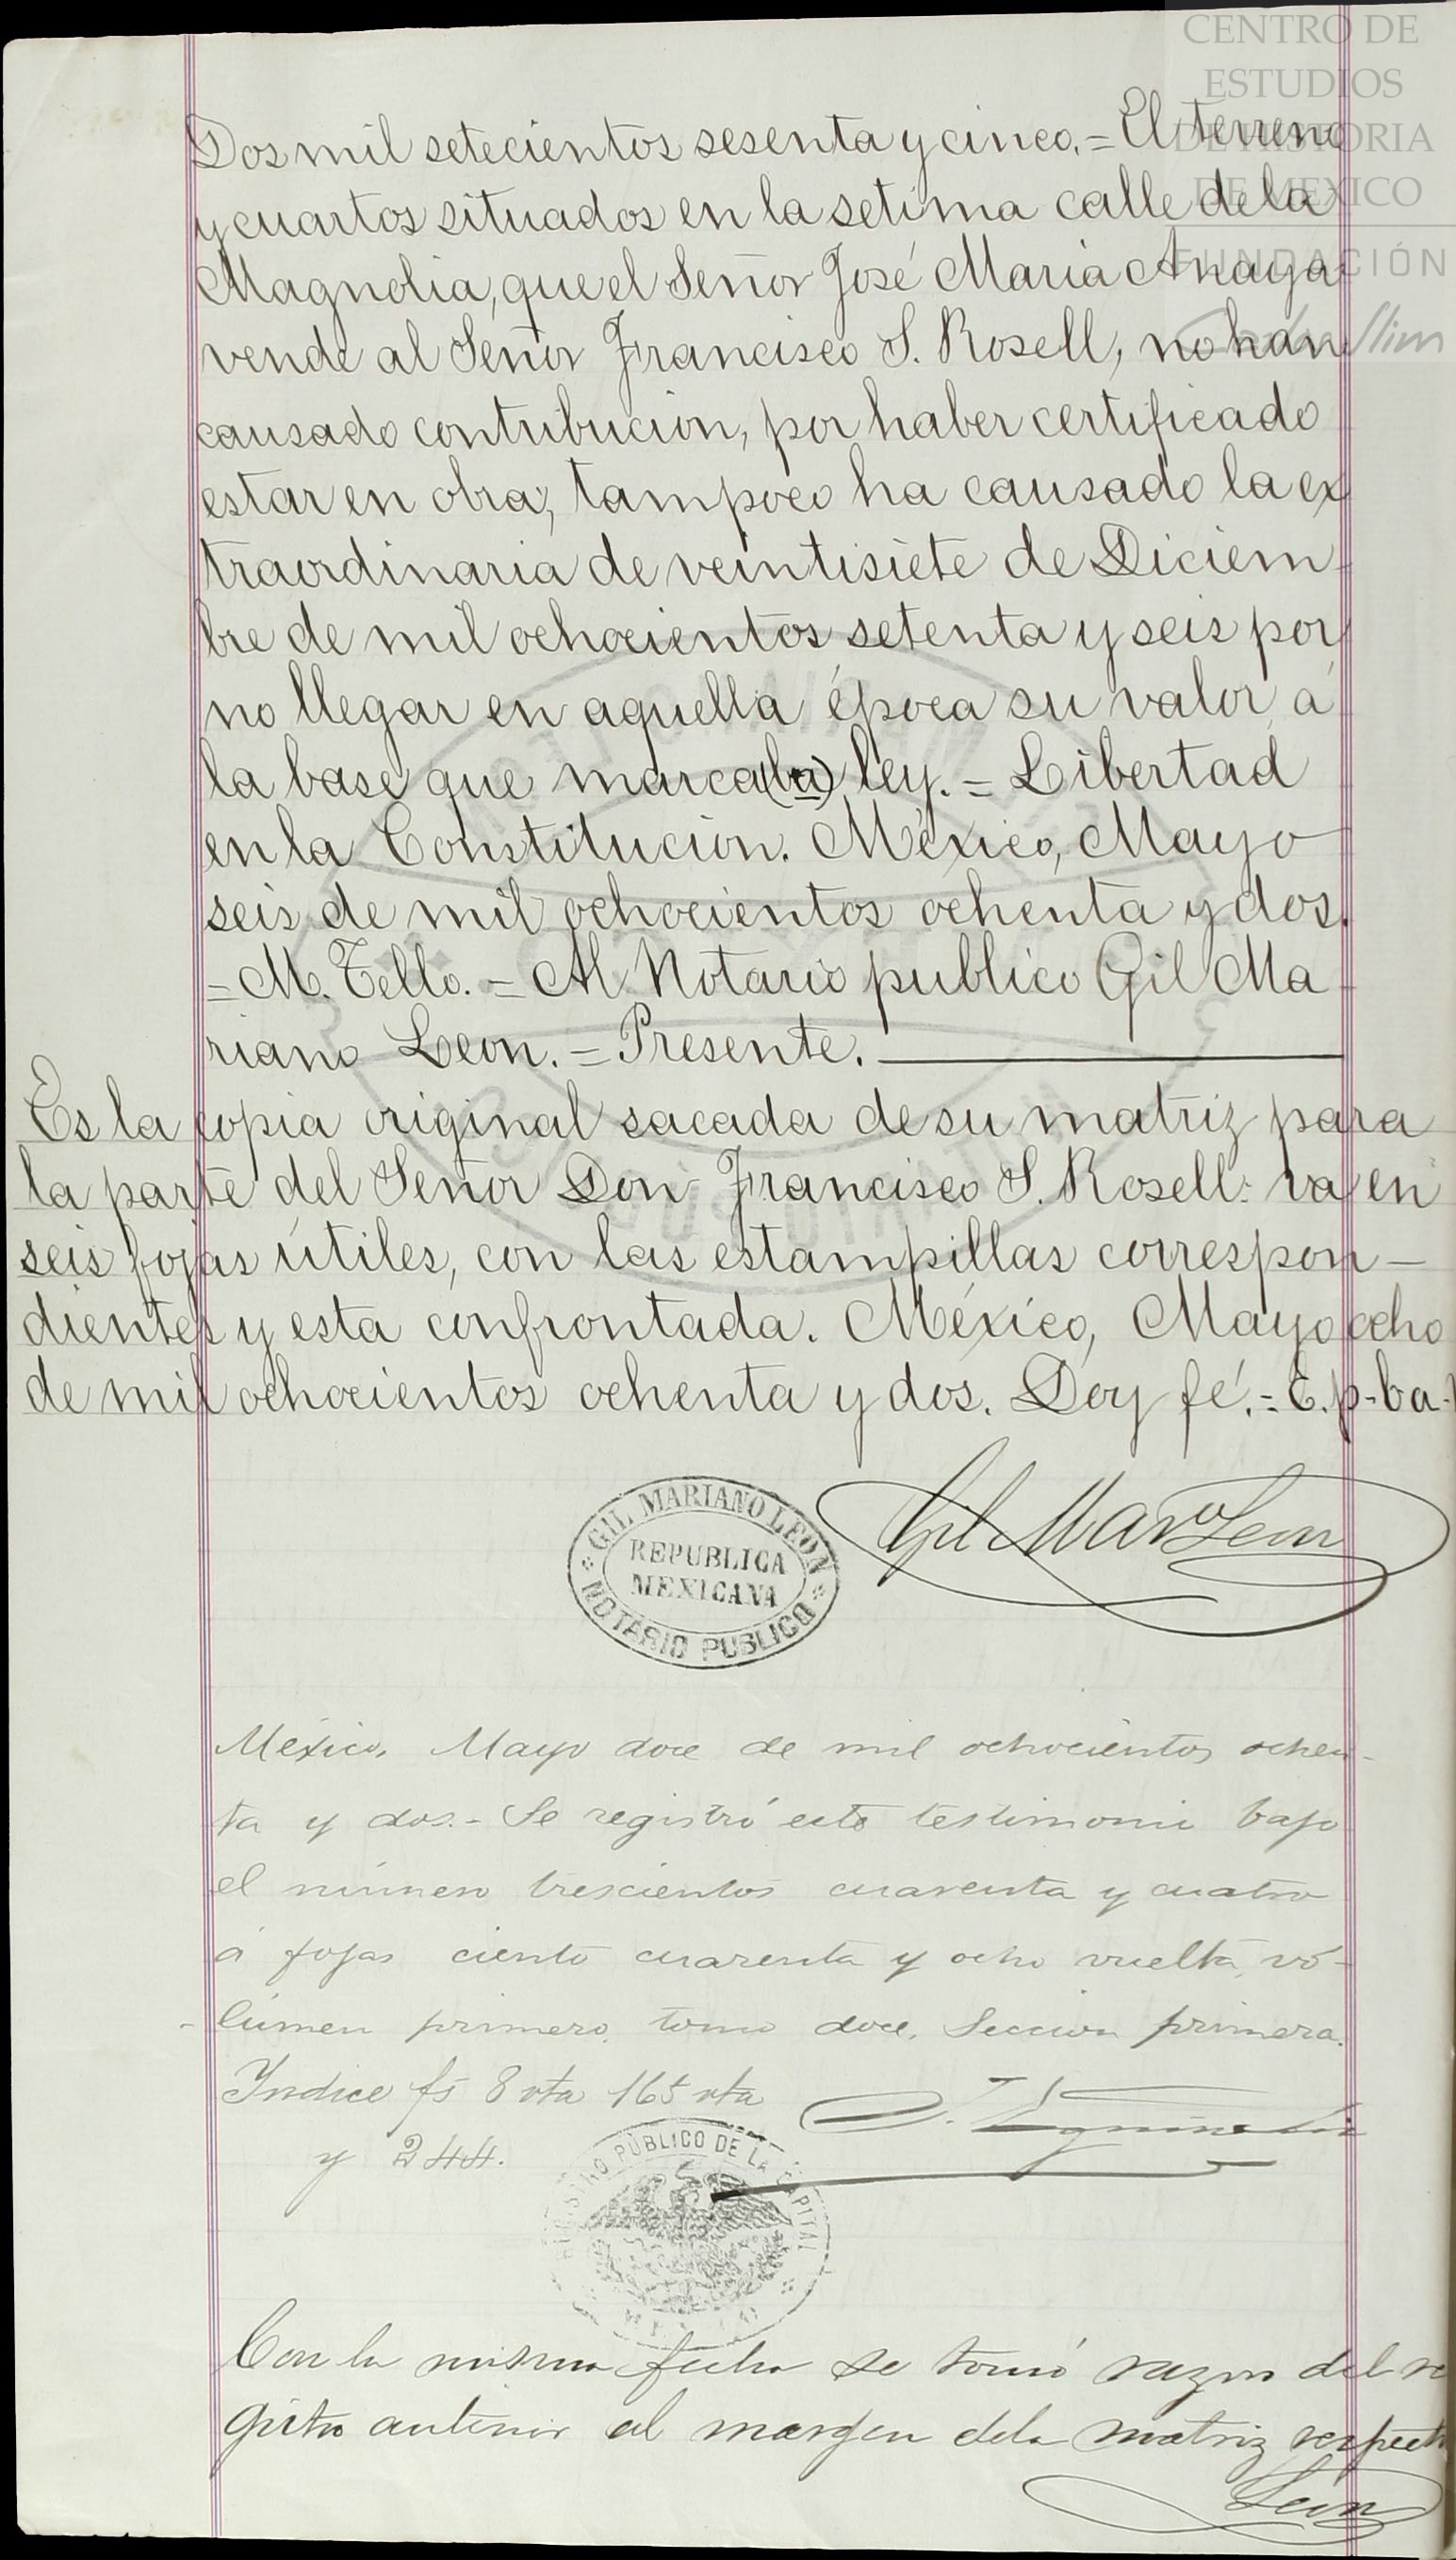 CENTRO DE
ESTUDIOS
DE HISTORIA
DE MEXICO
FUNDACIÓN
Dos mil setecientos sesenta y cinco. = El terreno
y cuartos situados en la setima calle de la
Magnolia, que el Señor José Maria Anaya
vende al Señor Francisco S. Rosell, no han
causado contribucion, por haber certificado
estar en obra; tampoco ha causado la ex
traordinaria de veintisiete de Diciem-
bre de mil ochocientos setenta y seis por
no llegar en aquella época su valor á
la base que marca(ba) ley. = Libertad
en la Constitucion. México, Mayo
seis de mil ochocientos ochenta y dos.
= M. Tello. = Al Notario publico Gil Ma-
riano Leon. = Presente.
Es la copia original sacada de su matriz para
la parte del Señor Don Francisco S. Rosell: va en
seis fojas útiles, con las estampillas correspon-
dientes y esta confrontada. México, Mayo ocho
de mil ochocientos ochenta y dos. Doy fé. = E. p-ba-
GIL MARIANO LEON
REPUBLICA
MEXICANA
NOTARIO PUBLICO
Gil Marno Leon
México, Mayo doce de mil ochocientos ochen-
ta y dos.- Se registró este testimonio bajo
el número trescientos cuarenta y cuatro
á fojas ciento cuarenta y ocho vuelta, vo-
lúmen primero, tomo doce, Seccion primera.
Yndice fs 8 vta 165 vta
y 244.
PUBLICO DE LA CAPITAL
Con la misma fecha se tomó razon del re
gistro anterior al margen dela matriz respect
Leon